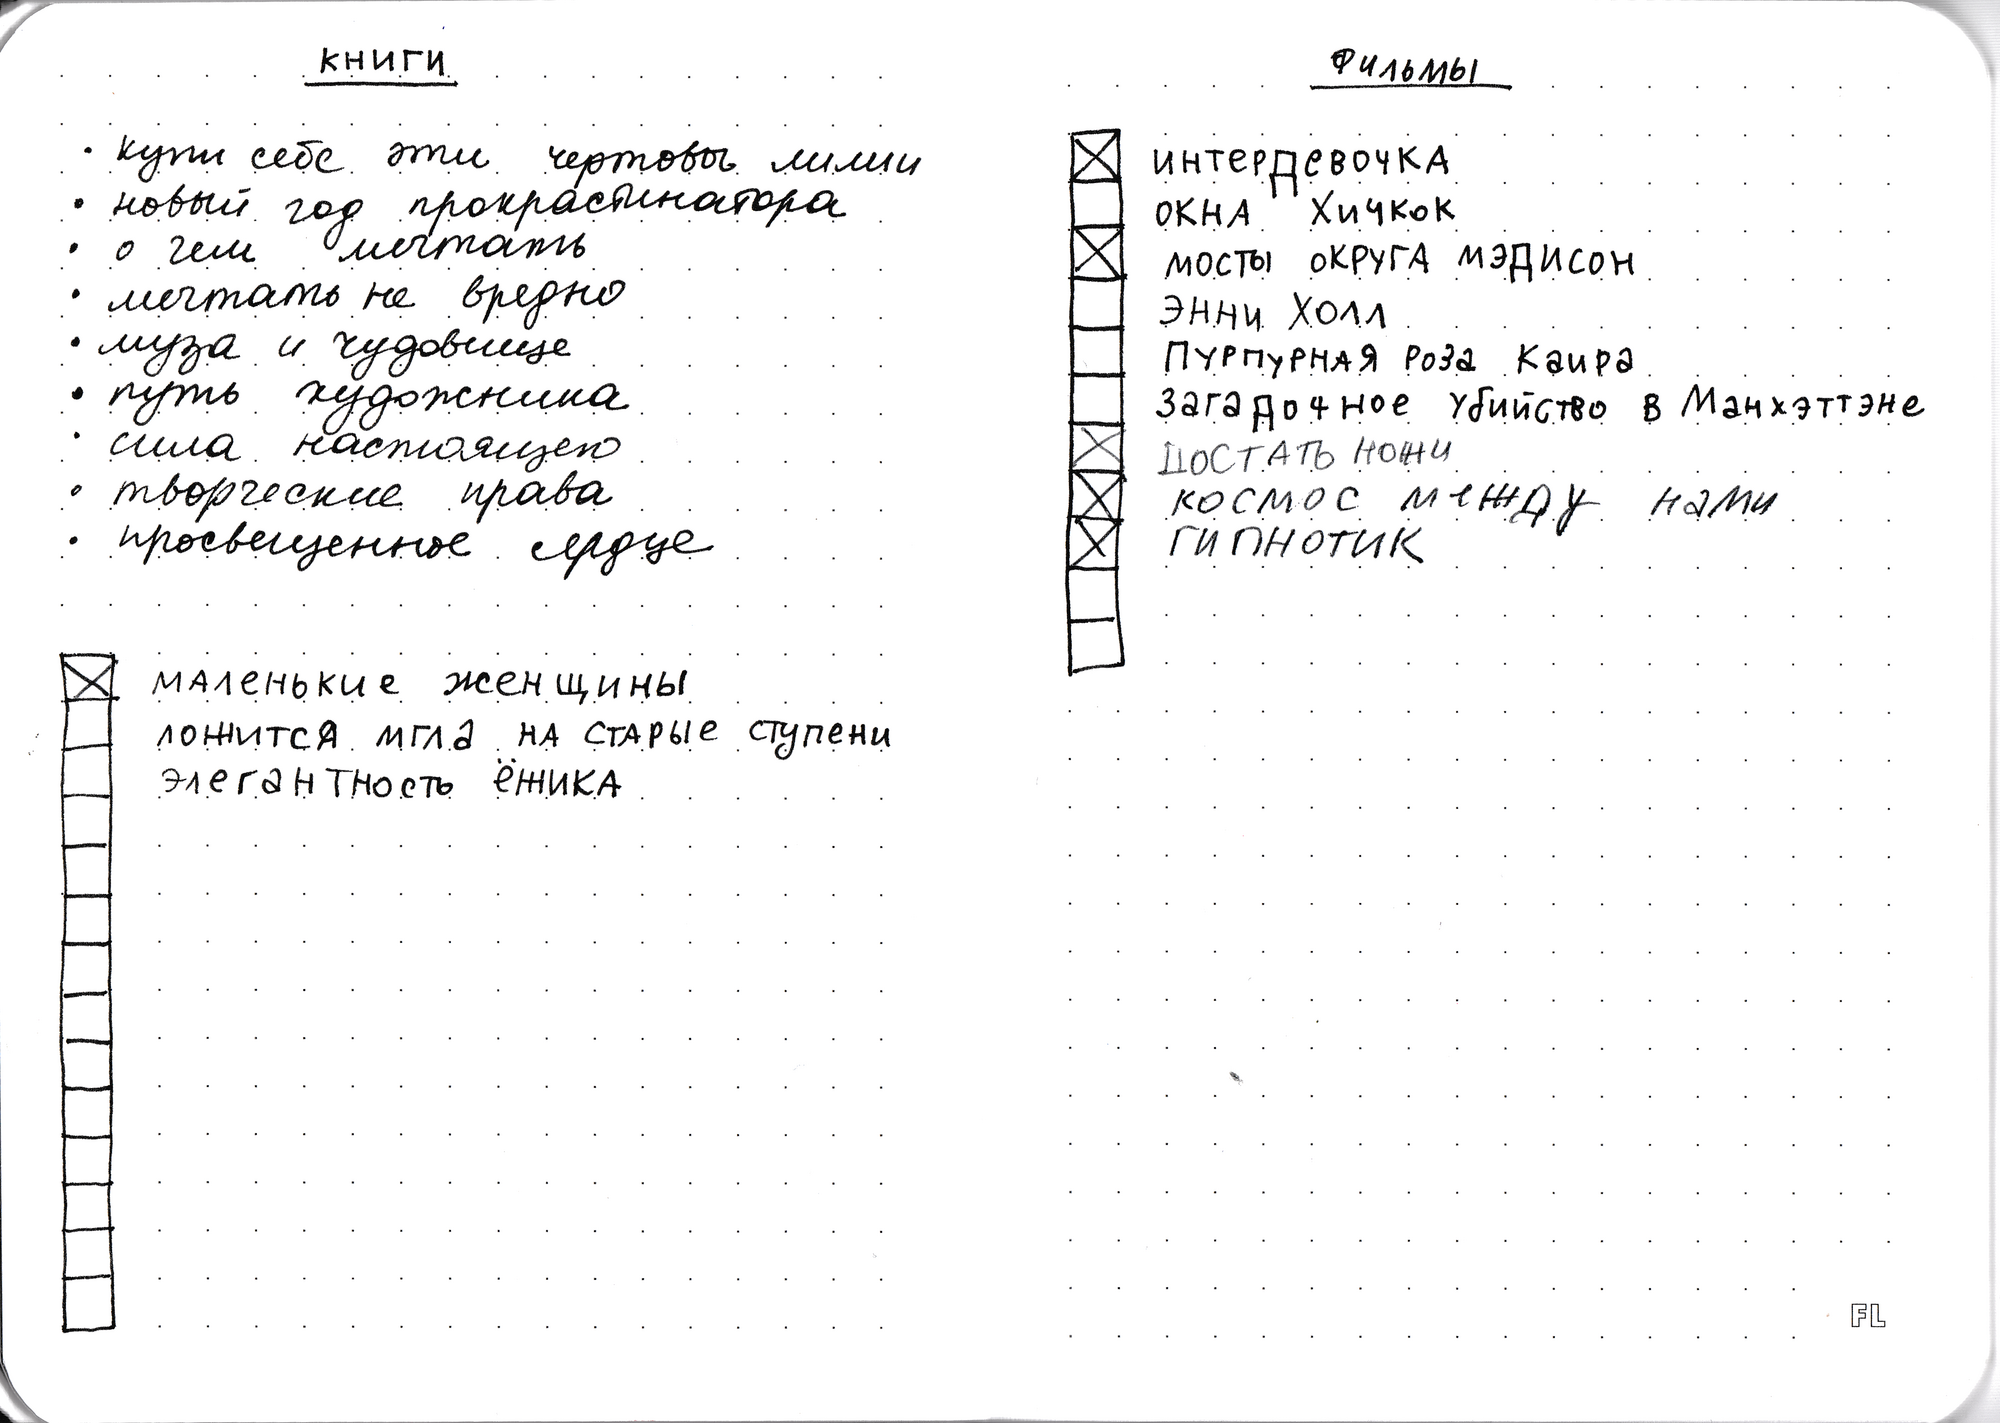 КНИГИ
• купи себе эти чертовы лилии
• новый год прокрастинатора
• о чем мечтать
• мечтать не вредно
• муза и чудовище
• путь художника
• сила настоящего
• творческие права
• просвещенное сердце
МАЛЕНЬКИЕ ЖЕНЩИНЫ
ЛОЖИТСЯ МГЛА НА СТАРЫЕ СТУПЕНИ
ЭЛЕГАНТНОСТЬ ЁЖИКА
ФИЛЬМЫ
ИНТЕРДЕВОЧКА
ОКНА ХИЧКОК
МОСТЫ ОКРУГА МЭДИСОН
ЭННИ ХОЛЛ
ПУРПУРНАЯ РОЗА Каира
Загадочное убийство в Манхэттэне
ДОСТАТЬ НОЖИ
КОСМОС МЕЖДУ НАМИ
ГИПНОТИК
FL